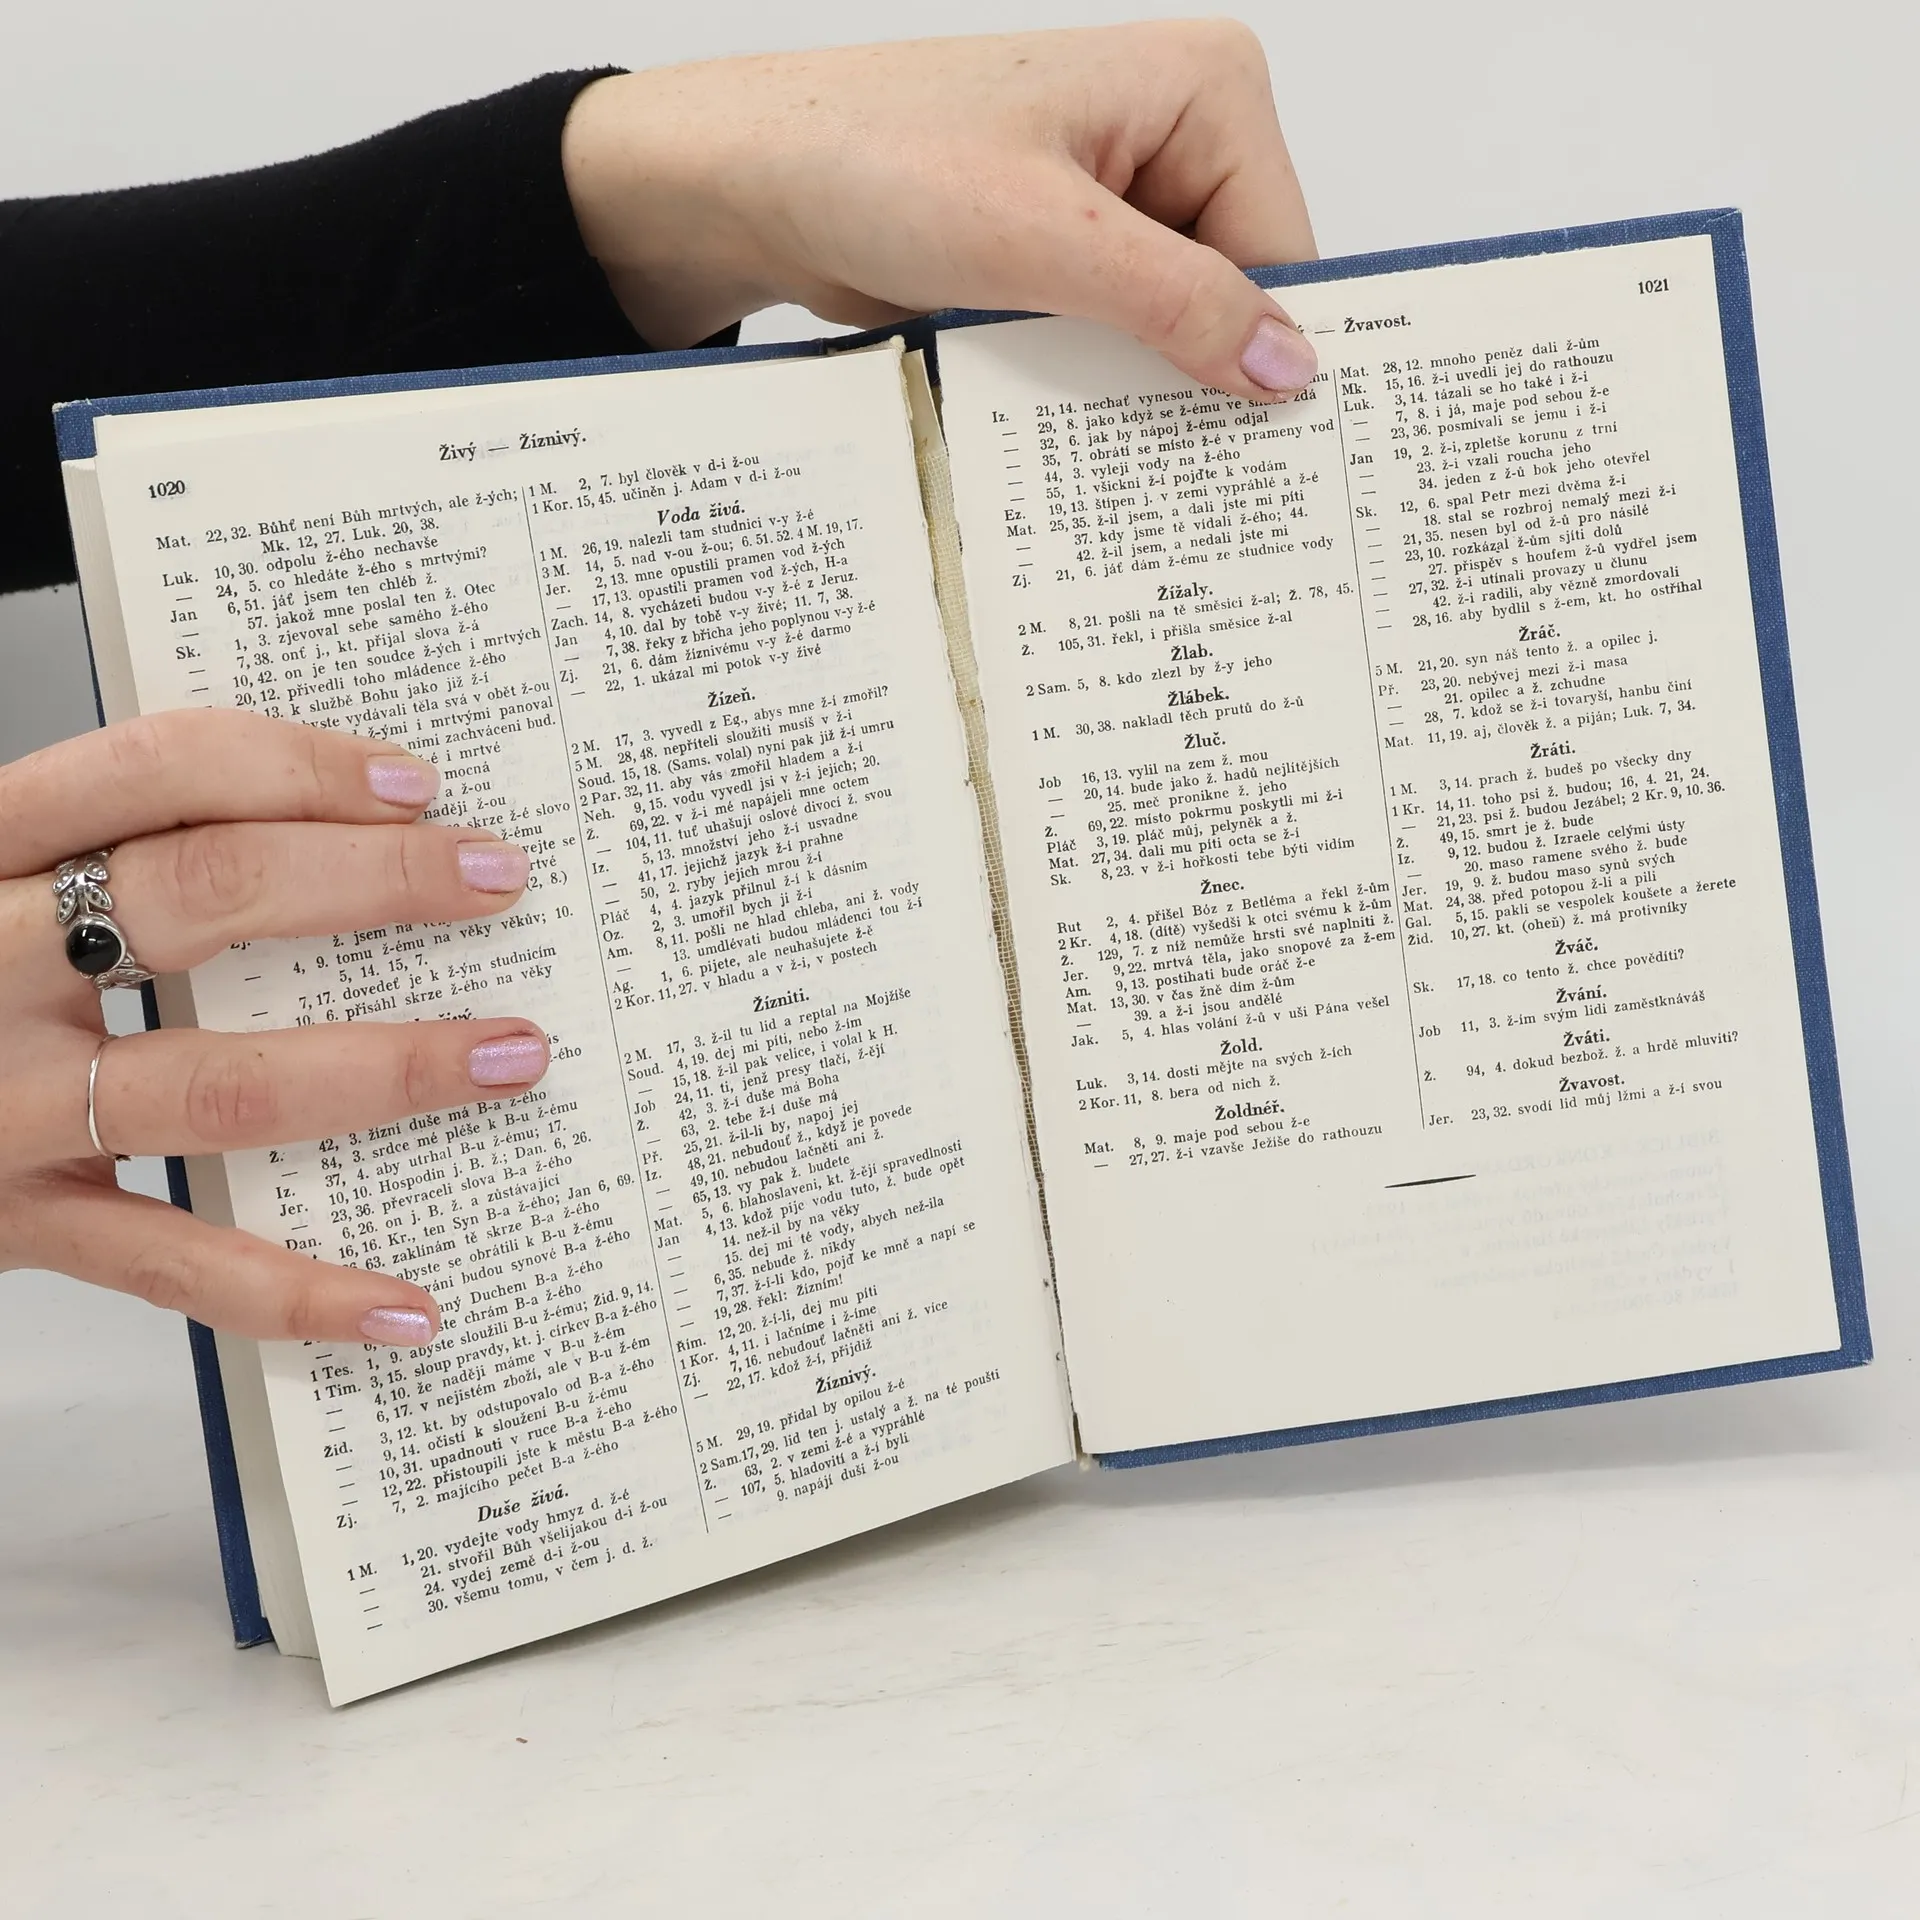 1020
Živý — Žíznivý.
Mat. 22, 32. Bůhť není Bůh mrtvých, ale ž-ých;
Mk. 12, 27. Luk. 20, 38.
Luk. 10, 30. odpolu ž-ého nechavše
— 24, 5. co hledáte ž-ého s mrtvými?
Jan 6, 51. jáť jsem ten chléb ž.
— 57. jakož mne poslal ten ž. Otec
Sk. 1, 3. zjevoval sebe samého ž-ého
— 7, 38. onť j., kt. přijal slova ž-á
— 10, 42. on je ten soudce ž-ých i mrtvých
— 20, 12. přivedli toho mládence ž-ého
13. k službě Bohu jako již ž-í
vydávali těla svá v obět ž-ou
ž-ými i mrtvými panoval
nimi zachváceni bud.
i mrtvé
mocná
a ž-ou
naději ž-ou
skrze ž-é slovo
ž-ému
se
(2, 8.)
Zj. ž. jsem na věky věkův; 10.
— 4, 9. tomu ž-ému na věky
5, 14. 15, 7.
7, 17. dovedeť je k ž-ým studnicím
— 10, 6. přisáhl skrze ž-ého na věky
ž-ého
má B-a ž-ého
Ž. 42, 3. žízní duše
— 84, 3. srdce mé pléše k B-u ž-ému
Iz. 37, 4. aby utrhal B-u ž-ému; 17.
Jer. 10, 10. Hospodin j. B. ž.; Dan. 6, 26.
— 23, 36. převraceli slova B-a ž-ého
Dan. 6, 26. on j. B. ž. a zůstávající
16, 16. Kr., ten Syn B-a ž-ého; Jan 6, 69.
63. zaklínám tě skrze B-a ž-ého
abyste se obrátili k B-u ž-ému
budou synové B-a ž-ého
Duchem B-a ž-ého
chrám B-a ž-ého
1 Tes. 1, 9. abyste sloužili B-u ž-ému; Žid. 9, 14.
1 Tim. 3, 15. sloup pravdy, kt. j. církev B-a ž-ého
— 4, 10. že naději máme v B-u ž-ém
— 6, 17. v nejistém zboží, ale v B-u ž-ém
Žid. 3, 12. kt. by odstupovalo od B-a ž-ého
— 9, 14. očistí k sloužení B-u ž-ému
— 10, 31. upadnouti v ruce B-a ž-ého
— 12, 22. přistoupili jste k městu B-a ž-ého
Zj. 7, 2. majícího pečet B-a ž-ého
Duše živá.
1 M. 1, 20. vydejte vody hmyz d. ž-é
— 21. stvořil Bůh všelijakou d-i ž-ou
— 24. vydej země d-i ž-ou
— 30. všemu tomu, v čem j. d. ž.
1 M. 2, 7. byl člověk v d-i ž-ou
1 Kor. 15, 45. učiněn j. Adam v d-i ž-ou
Voda živá.
1 M. 26, 19. nalezli tam studnici v-y ž-é
3 M. 14, 5. nad v-ou ž-ou; 6. 51. 52. 4 M. 19, 17.
Jer. 2, 13. mne opustili pramen vod ž-ých
— 17, 13. opustili pramen vod ž-ých, H-a
Zach. 14, 8. vycházeti budou v-y ž-é z Jeruz.
Jan 4, 10. dal by tobě v-y živé; 11. 7, 38.
— 7, 38. řeky z břicha jeho poplynou v-y ž-é
Zj. 21, 6. dám žíznivému v-y ž-é darmo
— 22, 1. ukázal mi potok v-y živé
Žízeň.
2 M. 17, 3. vyvedl z Eg., abys mne ž-í zmořil?
5 M. 28, 48. nepříteli sloužiti musíš v ž-i
Soud. 15, 18. (Sams. volal) nyní pak již ž-í umru
2 Par. 32, 11. aby vás zmořil hladem a ž-í
Neh. 9, 15. vodu vyvedl jsi v ž-i jejich; 20.
Ž. 69, 22. v ž-i mé napájeli mne octem
— 104, 11. tuť uhašují oslové divocí ž. svou
Iz. 5, 13. množství jeho ž-í usvadne
— 41, 17. jejichž jazyk ž-í prahne
— 50, 2. ryby jejich mrou ž-í
Pláč 4, 4. jazyk přilnul ž-í k dásním
Oz. 2, 3. umořil bych ji ž-í
Am. 8, 11. pošli ne hlad chleba, ani ž. vody
— 13. umdlévati budou mládenci tou ž-í
Ag. 1, 6. pijete, ale neuhašujete ž-ě
2 Kor. 11, 27. v hladu a v ž-i, v postech
Žízniti.
2 M. 17, 3. ž-il tu lid a reptal na Mojžíše
Soud. 4, 19. dej mi píti, nebo ž-ím
— 15, 18. ž-il pak velice, i volal k H.
Job 24, 11. ti, jenž presy tlačí, ž-ějí
Ž. 42, 3. ž-í duše má Boha
— 63, 2. tebe ž-í duše má
Př. 25, 21. ž-íl-li by, napoj jej
Iz. 48, 21. nebudouť ž., když je povede
— 49, 10. nebudou lačněti ani ž.
— 65, 13. vy pak ž. budete
Mat. 5, 6. blahoslavení, kt. ž-ějí spravedlnosti
Jan 4, 13. kdož pije vodu tuto, ž. bude opět
— 14. než-il by na věky
— 15. dej mi té vody, abych než-ila
— 6, 35. nebude ž. nikdy
— 7, 37. ž-í-li kdo, pojď ke mně a napí se
— 19, 28. řekl: Žízním!
Řím. 12, 20. ž-í-li, dej mu píti
1 Kor. 4, 11. i lačníme i ž-íme
Zj. 7, 16. nebudouť lačněti ani ž. více
— 22, 17. kdož ž-í, přijdiž
Žíznivý.
5 M. 29, 19. přidal by opilou ž-é
2 Sam. 17, 29. lid ten j. ustalý a ž. na té poušti
Ž. 63, 2. v zemi ž-é a vyprahlé
— 107, 5. hladovití a ž-í byli
— 9. napájí duši ž-ou
1021
— Žvavost.
Iz. 21, 14. nechať vynesou
— 29, 8. jako když se ž-ému ve zdá
— 32, 6. jak by nápoj ž-ému odjal
— 35, 7. obrátí se místo ž-é v prameny vod
— 44, 3. vyleji vody na ž-ého
— 55, 1. všickni ž-í pojďte k vodám
Ez. 19, 13. štípen j. v zemi vyprahlé a ž-é
Mat. 25, 35. ž-il jsem, a dali jste mi píti
— 37. kdy jsme tě vídali ž-ého; 44.
— 42. ž-il jsem, a nedali jste mi
Zj. 21, 6. jáť dám ž-ému ze studnice vody
Žížaly.
2 M. 8, 21. pošli na tě směsici ž-al; Ž. 78, 45.
Ž. 105, 31. řekl, i přišla směsice ž-al
Žlab.
2 Sam. 5, 8. kdo zlezl by ž-y jeho
Žlábek.
1 M. 30, 38. nakladl těch prutů do ž-ů
Žluč.
Job 16, 13. vylil na zem ž. mou
— 20, 14. bude jako ž. hadů nejlítějších
— 25. meč pronikne ž. jeho
Ž. 69, 22. místo pokrmu poskytli mi ž-i
Pláč 3, 19. pláč můj, pelyněk a ž.
Mat. 27, 34. dali mu píti octa se ž-í
Sk. 8, 23. v ž-i hořkosti tebe býti vidím
Žnec.
Rut 2, 4. přišel Bóz z Betléma a řekl ž-ům
2 Kr. 4, 18. (dítě) vyšedši k otci svému k ž-ům
Ž. 129, 7. z níž nemůže hrsti své naplniti ž.
Jer. 9, 22. mrtvá těla, jako snopové za ž-em
Am. 9, 13. postihati bude oráč ž-e
Mat. 13, 30. v čas žně dím ž-ům
— 39. a ž-i jsou andělé
Jak. 5, 4. hlas volání ž-ů v uši Pána vešel
Žold.
Luk. 3, 14. dosti mějte na svých ž-ích
2 Kor. 11, 8. bera od nich ž.
Žoldnéř.
Mat. 8, 9. maje pod sebou ž-e
— 27, 27. ž-i vzavše Ježíše do rathouzu
Mat. 28, 12. mnoho peněz dali ž-ům
Mk. 15, 16. ž-i uvedli jej do rathouzu
Luk. 3, 14. tázali se ho také i ž-i
— 7, 8. i já, maje pod sebou ž-e
— 23, 36. posmívali se jemu i ž-i
Jan 19, 2. ž-i, zpletše korunu z trní
— 23. ž-i vzali roucha jeho
— 34. jeden z ž-ů bok jeho otevřel
Sk. 12, 6. spal Petr mezi dvěma ž-i
— 18. stal se rozbroj nemalý mezi ž-i
— 21, 35. nesen byl od ž-ů pro násilé
— 23, 10. rozkázal ž-ům sjíti dolů
— 27. přispěv s houfem ž-ů vydřel jsem
— 27, 32. ž-i utínali provazy u člunu
— 42. ž-i radili, aby vězně zmordovali
— 28, 16. aby bydlil s ž-em, kt. ho ostříhal
Žráč.
5 M. 21, 20. syn náš tento ž. a opilec j.
Př. 23, 20. nebývej mezi ž-i masa
— 21. opilec a ž. zchudne
— 28, 7. kdož se ž-i tovaryší, hanbu činí
Mat. 11, 19. aj, člověk ž. a piján; Luk. 7, 34.
Žráti.
1 M. 3, 14. prach ž. budeš po všecky dny
1 Kr. 14, 11. toho psi ž. budou; 16, 4. 21, 24.
— 21, 23. psi ž. budou Jezábel; 2 Kr. 9, 10. 36.
Ž. 49, 15. smrt je ž. bude
Iz. 9, 12. budou ž. Izraele celými ústy
— 20. maso ramene svého ž. bude
Jer. 19, 9. ž. budou maso synů svých
Mat. 24, 38. před potopou ž-li a pili
Gal. 5, 15. pakli se vespolek koušete a žerete
Žid. 10, 27. kt. (oheň) ž. má protivníky
Žváč.
Sk. 17, 18. co tento ž. chce pověděti?
Žvání.
Job 11, 3. ž-ím svým lidi zaměstknáváš
Žváti.
Ž. 94, 4. dokud bezbož. ž. a hrdě mluviti?
Žvavost.
Jer. 23, 32. svodí lid můj lžmi a ž-í svou